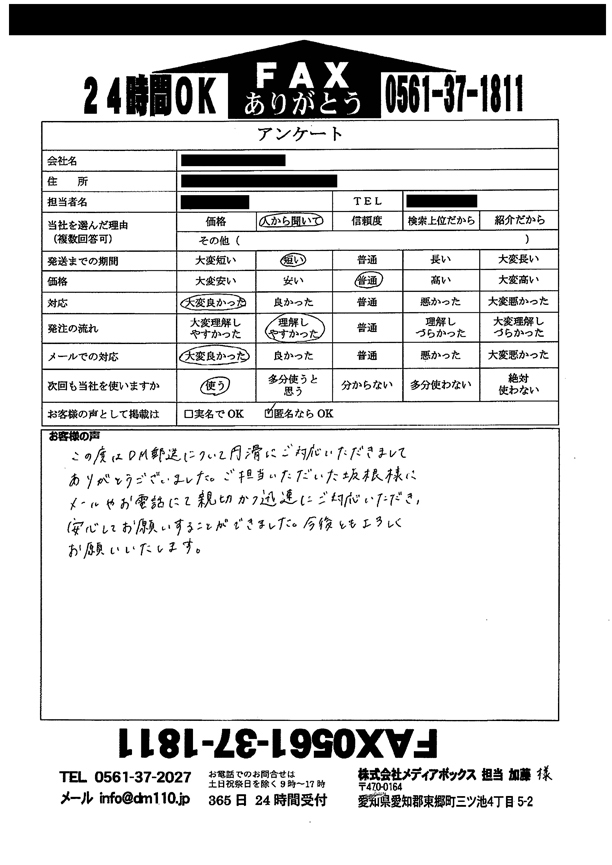 24時間OK FAX ありがとう 0561-37-1811
アンケート
会社名
住 所
担当者名 TEL
当社を選んだ理由 (複数回答可) 価格 人から聞いて 信頼度 検索上位だから 紹介だから
その他 ( )
発送までの期間 大変短い 短い 普通 長い 大変長い
価格 大変安い 安い 普通 高い 大変高い
対応 大変良かった 良かった 普通 悪かった 大変悪かった
発注の流れ 大変理解しやすかった 理解しやすかった 普通 理解しづらかった 大変理解しづらかった
メールでの対応 大変良かった 良かった 普通 悪かった 大変悪かった
次回も当社を使いますか 使う 多分使うと思う 分からない 多分使わない 絶対使わない
お客様の声として掲載は □実名でOK ☑匿名ならOK
お客様の声
この度はDM郵送について円滑にご対応いただきまして
ありがとうございました。ご担当いただいた坂根様に
メールやお電話にて親切かつ迅速にご対応いただき、
安心してお願いすることができました。今後ともよろしく
お願いいたします。
FAX0561-37-1811
TEL 0561-37-2027
メール info@dm110.jp
お電話でのお問合せは
土日祝祭日を除く9時～17時
365日 24時間受付
株式会社メディアボックス 担当 加藤 様
〒470-0164
愛知県愛知郡東郷町三ツ池4丁目5-2